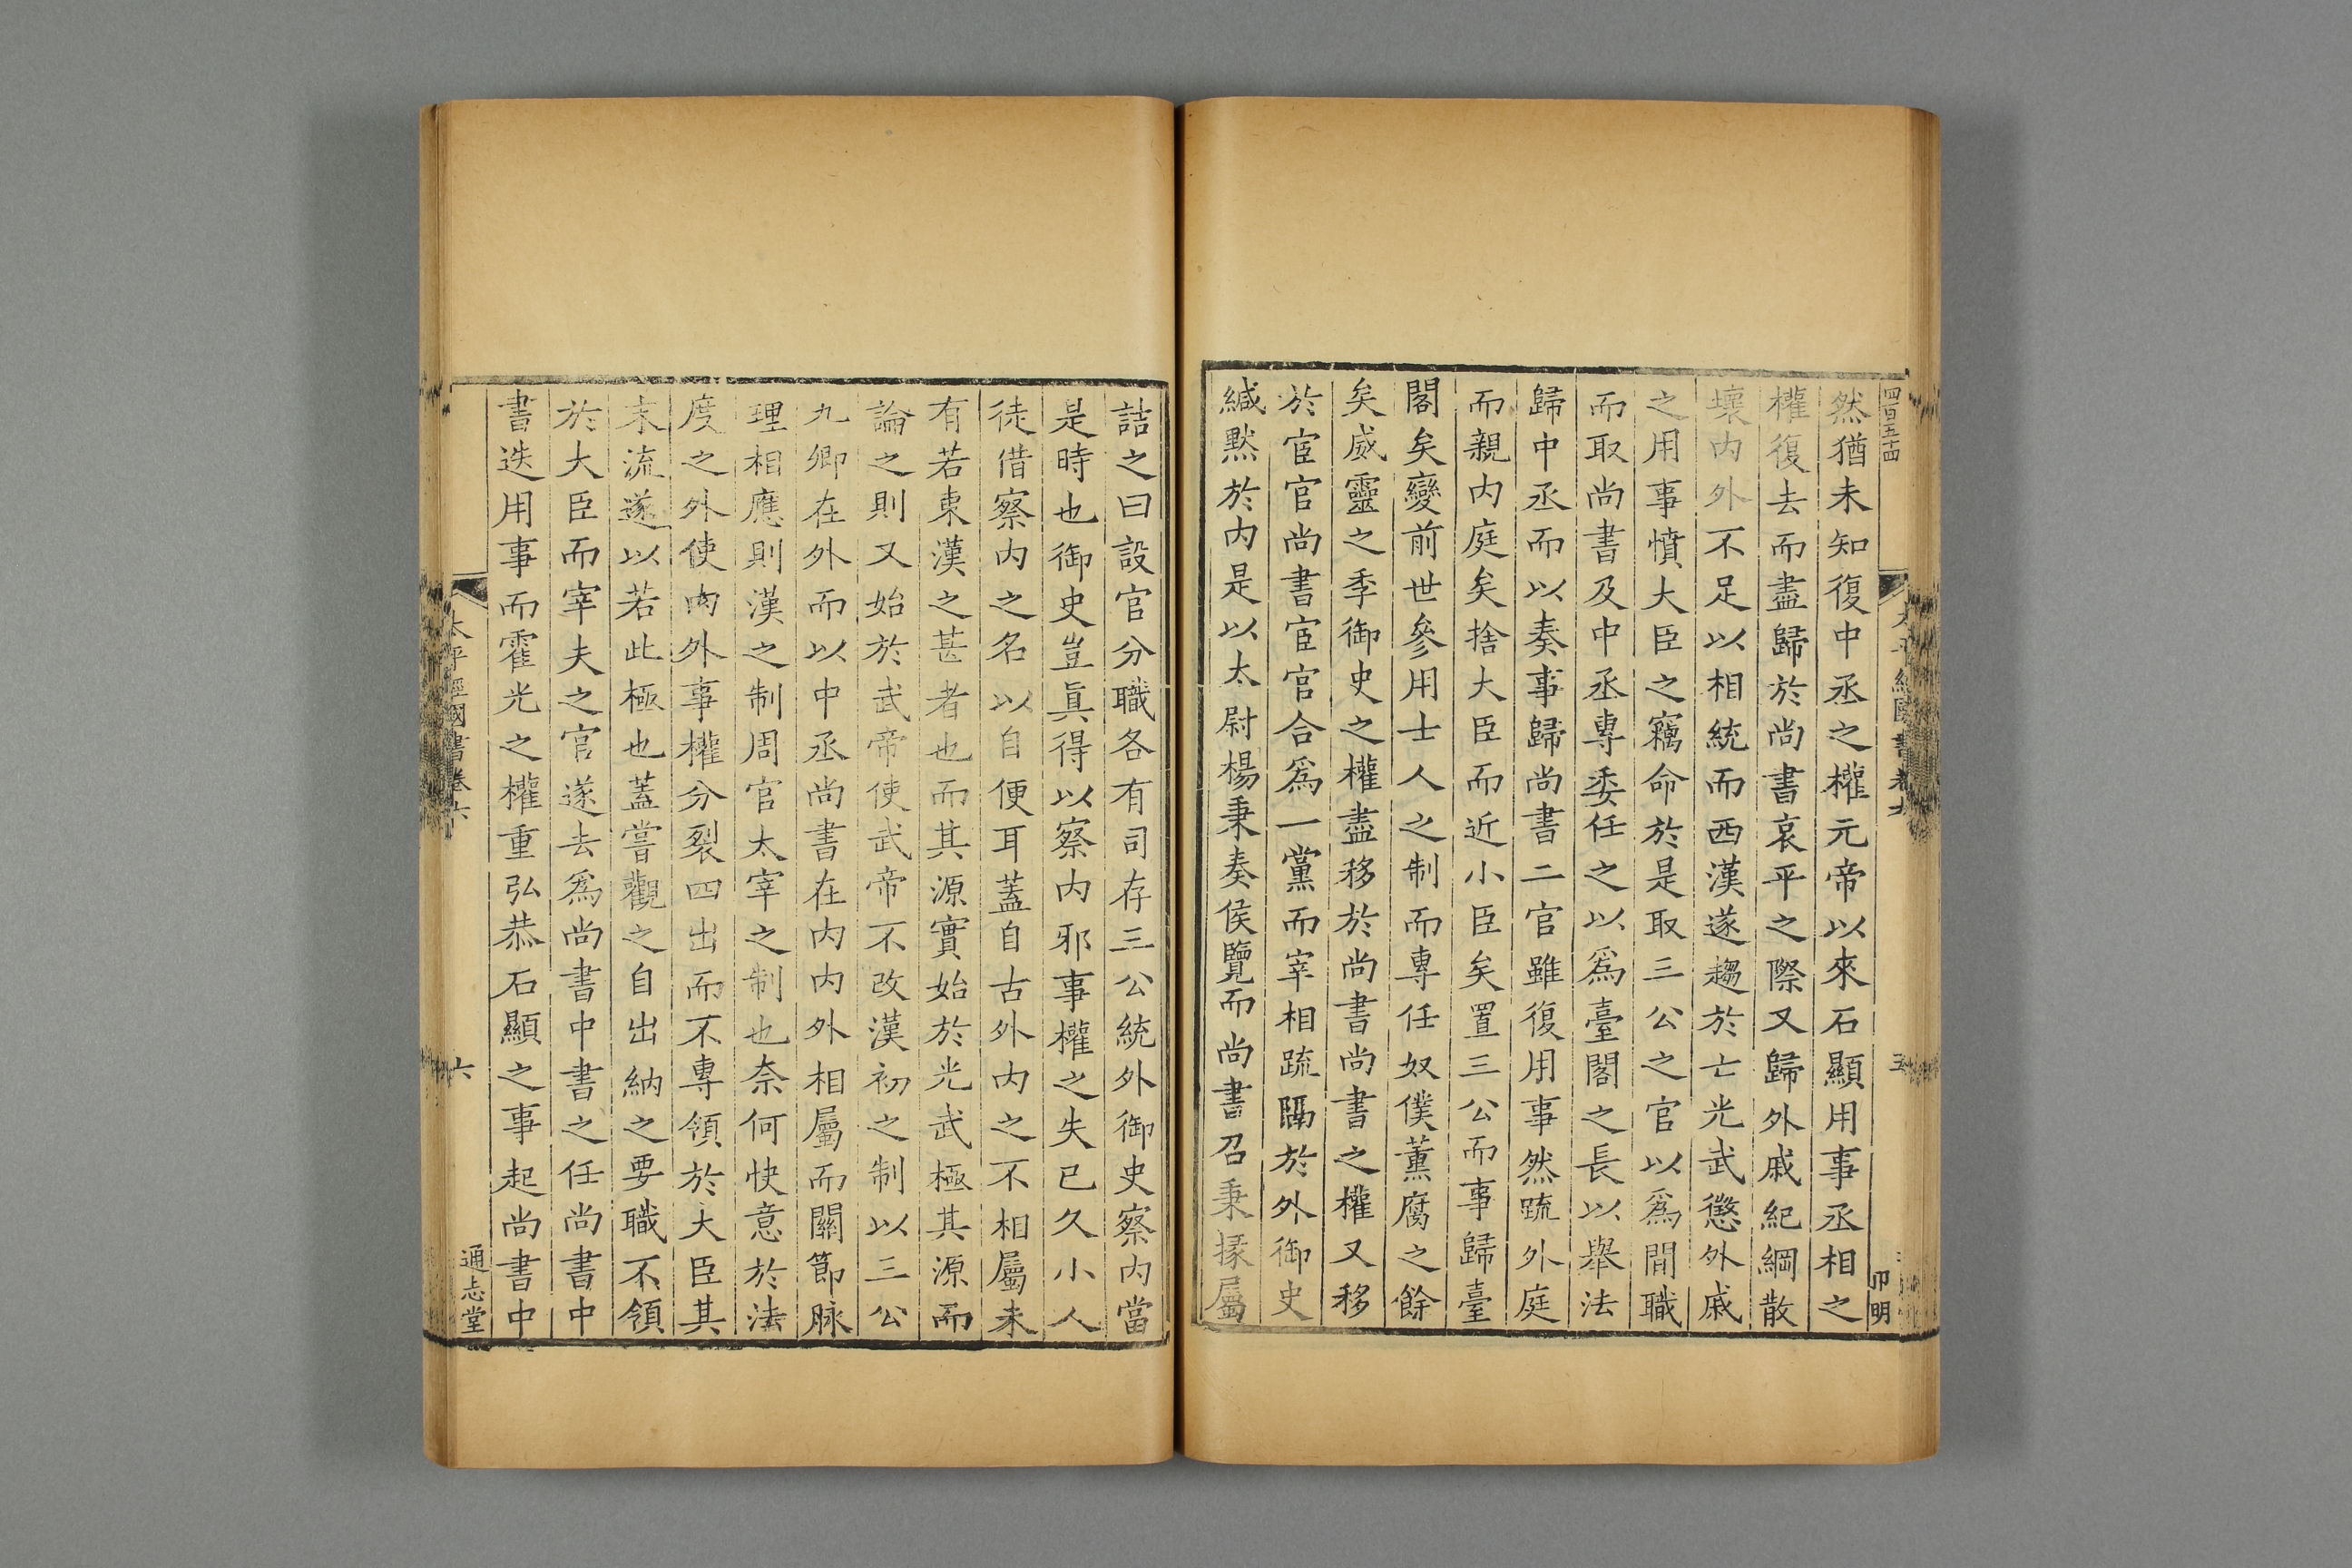 四百五十四
太平經國書卷六
五
卬明
然猶未知復中丞之權元帝以來石顯用事丞相之
權復去而盡歸於尚書哀平之際又歸外戚紀綱散
壞内外不足以相統而西漢遂趨於亡光武懲外戚
之用事憤大臣之竊命於是取三公之官以爲閒職
而取尚書及中丞專委任之以爲臺閣之長以舉法
歸中丞而以奏事歸尚書二官雖復用事然疏外庭
而親内庭矣捨大臣而近小臣矣置三公而事歸臺
閣矣變前世參用士人之制而專任奴僕薰腐之餘
矣威靈之季御史之權盡移於尚書尚書之權又移
於宦官尚書宦官合爲一黨而宰相疏隔於外御史
緘默於内是以太尉楊秉奏侯覽而尚書召秉掾屬
詰之曰設官分職各有司存三公統外御史察内當
是時也御史豈眞得以察内邪事權之失已久小人
徒借察内之名以自便耳蓋自古外内之不相屬未
有若東漢之甚者也而其源實始於光武極其源而
論之則又始於武帝使武帝不改漢初之制以三公
九卿在外而以中丞尚書在内内外相屬而關節脉
理相應則漢之制周官太宰之制也奈何快意於法
度之外使内外事權分裂四出而不專領於大臣其
末流遂以若此極也蓋嘗觀之自出納之要職不領
於大臣而宰夫之官遂去爲尚書中書之任尚書中
書迭用事而霍光之權重弘恭石顯之事起尚書中
太平經國書卷六
六
通志堂